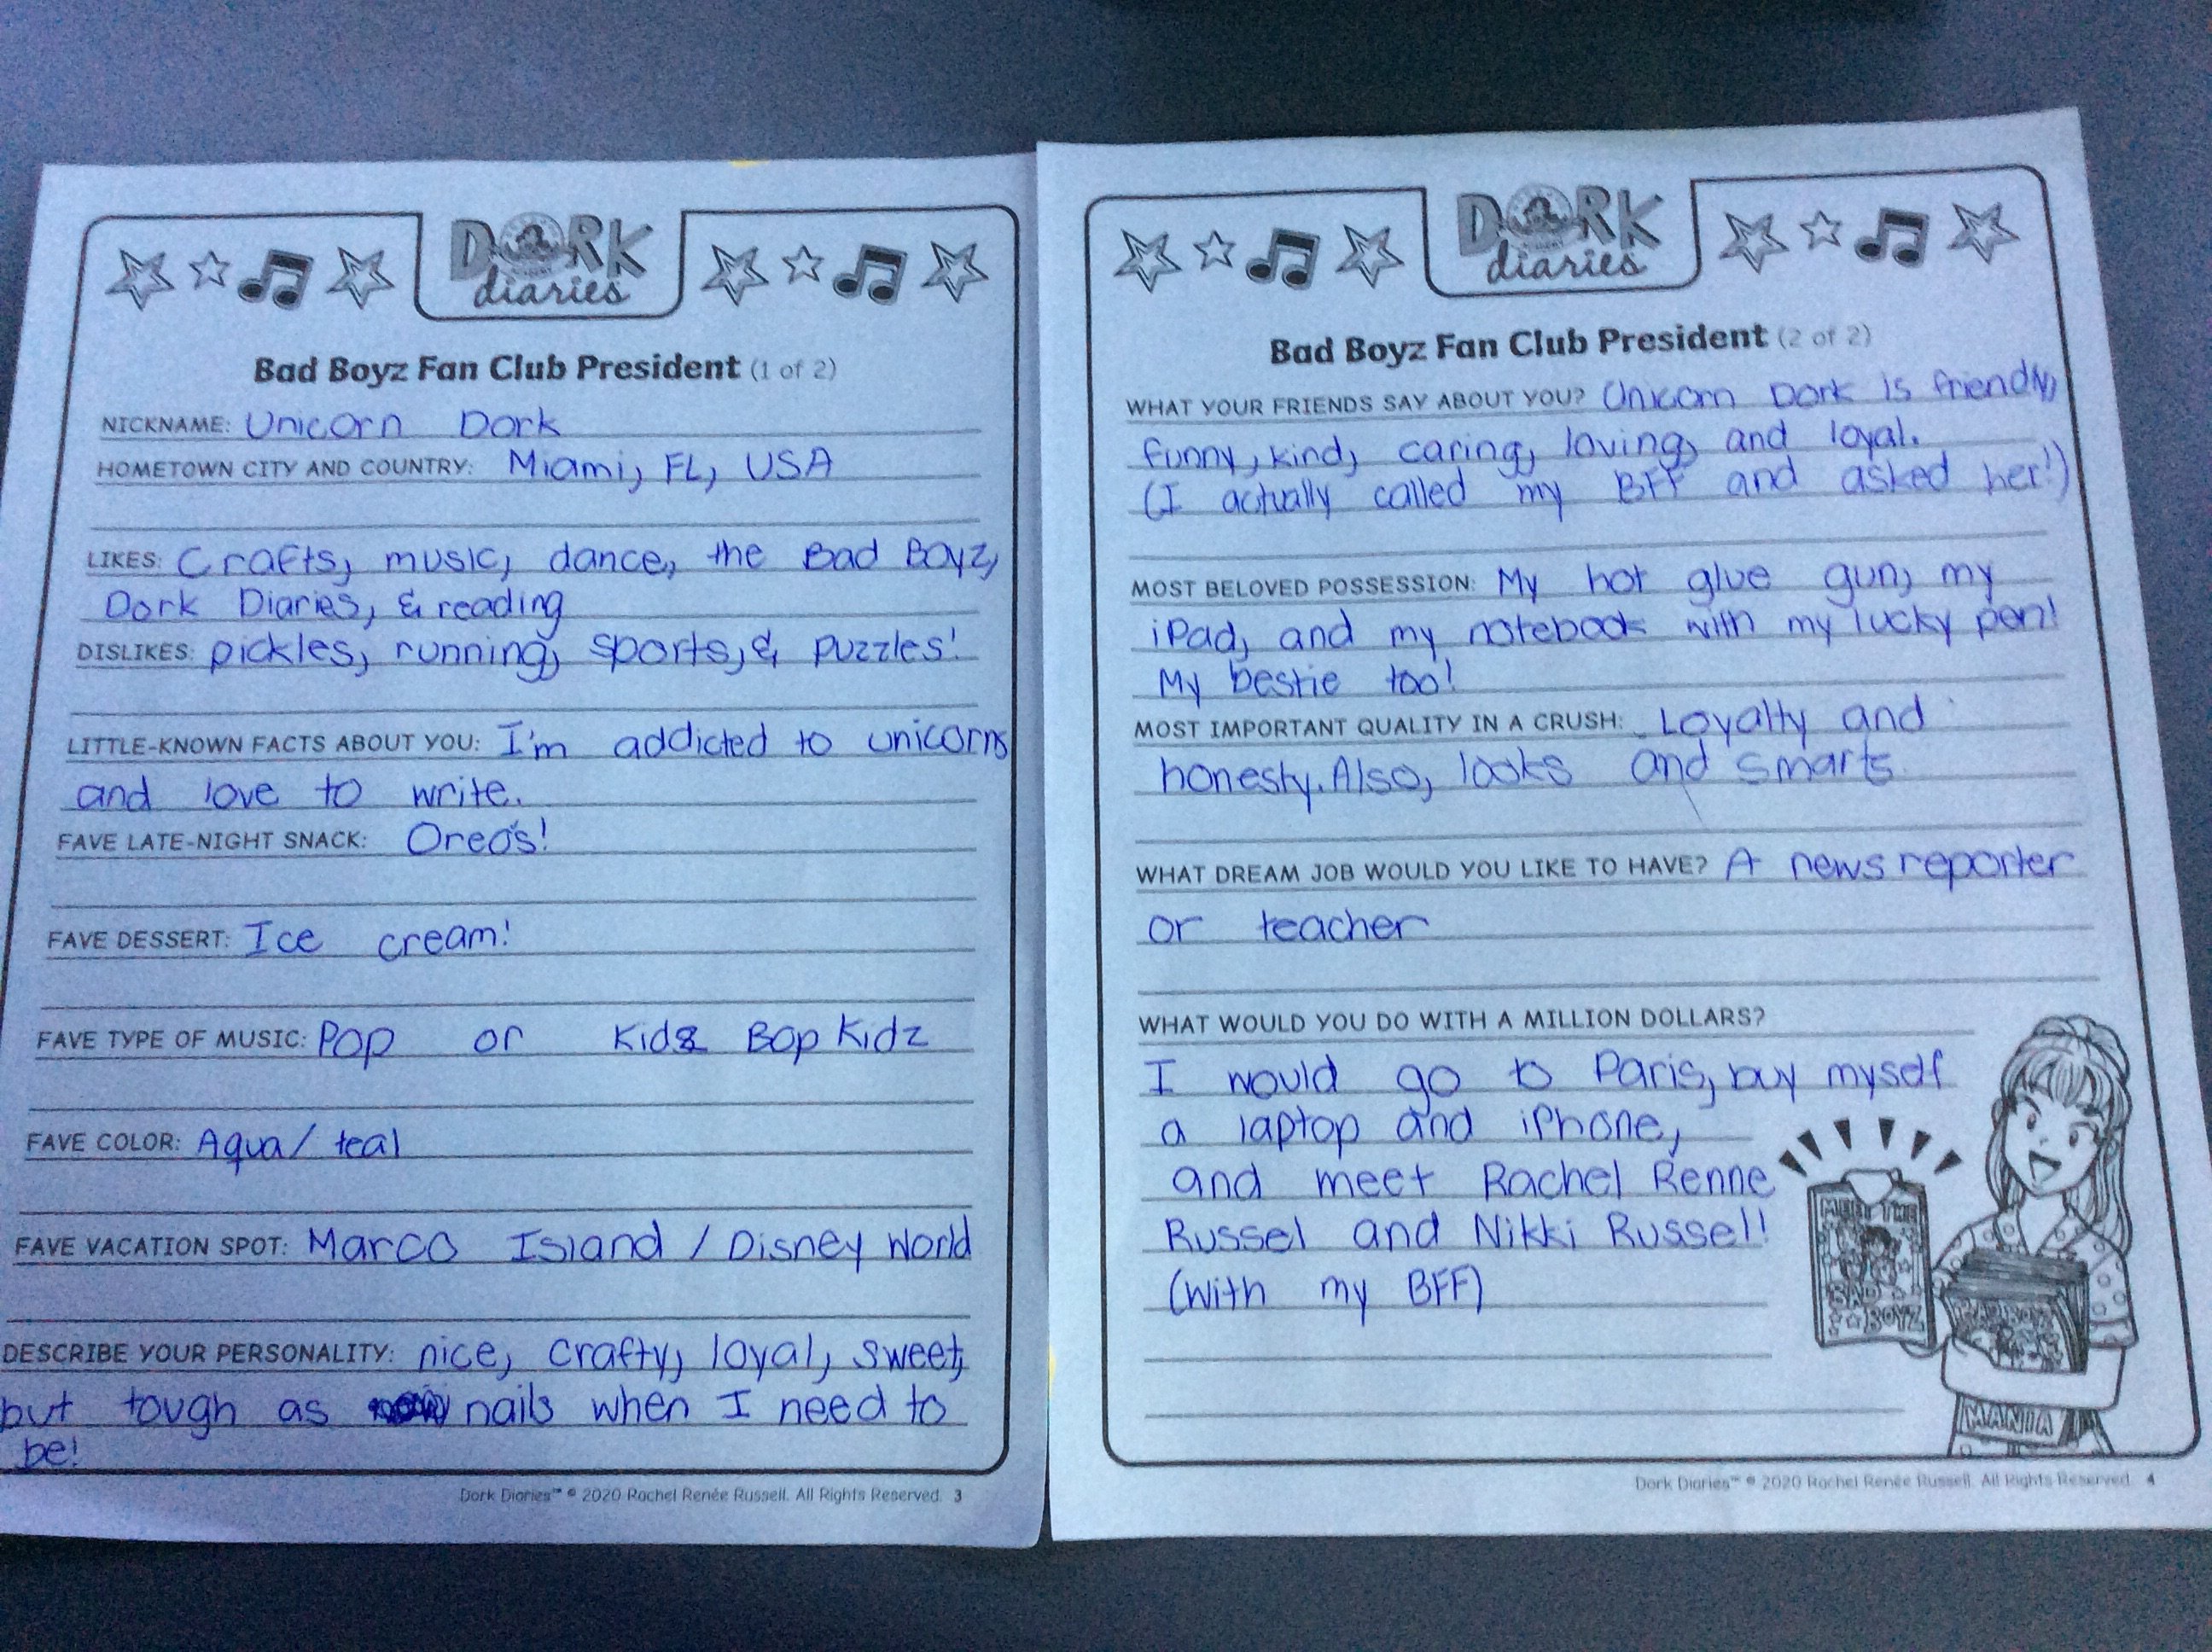 DORK
diaries
Bad Boyz Fan Club President (1 of 2)
NICKNAME: Unicorn Dork
HOMETOWN CITY AND COUNTRY: Miami, FL, USA
LIKES: Crafts, music, dance, the Bad Boyz,
Dork Diaries, & reading
DISLIKES: pickles, running, sports, & puzzles!
LITTLE-KNOWN FACTS ABOUT YOU: I'm addicted to unicorns
and love to write.
FAVE LATE-NIGHT SNACK: Oreo's!
FAVE DESSERT: Ice cream!
FAVE TYPE OF MUSIC: Pop or Kidz Bop Kidz
FAVE COLOR: Aqua/ teal
FAVE VACATION SPOT: Marco Island / Disney World
DESCRIBE YOUR PERSONALITY: nice, crafty, loyal, sweet,
but tough as nails when I need to
be!
Dork Diaries™ © 2020 Rachel Renée Russell. All Rights Reserved. 3
DORK
diaries
Bad Boyz Fan Club President (2 of 2)
WHAT YOUR FRIENDS SAY ABOUT YOU? Unicorn Dork is friendly,
funny, kind, caring, loving, and loyal.
(I actually called my BFF and asked her!)
MOST BELOVED POSSESSION: My hot glue gun, my
iPad, and my notebook with my lucky pen!
My bestie too!
MOST IMPORTANT QUALITY IN A CRUSH: Loyalty and
honesty. Also, looks and smarts.
WHAT DREAM JOB WOULD YOU LIKE TO HAVE? A news reporter
or teacher
WHAT WOULD YOU DO WITH A MILLION DOLLARS?
I would go to Paris, buy myself
a laptop and iPhone,
and meet Rachel Renne
Russel and Nikki Russel!
(with my BFF)
MEET THE
BAD
BOYZ
BAD BOYZ
MANIA
Dork Diaries™ © 2020 Rachel Renée Russell. All Rights Reserved. 4